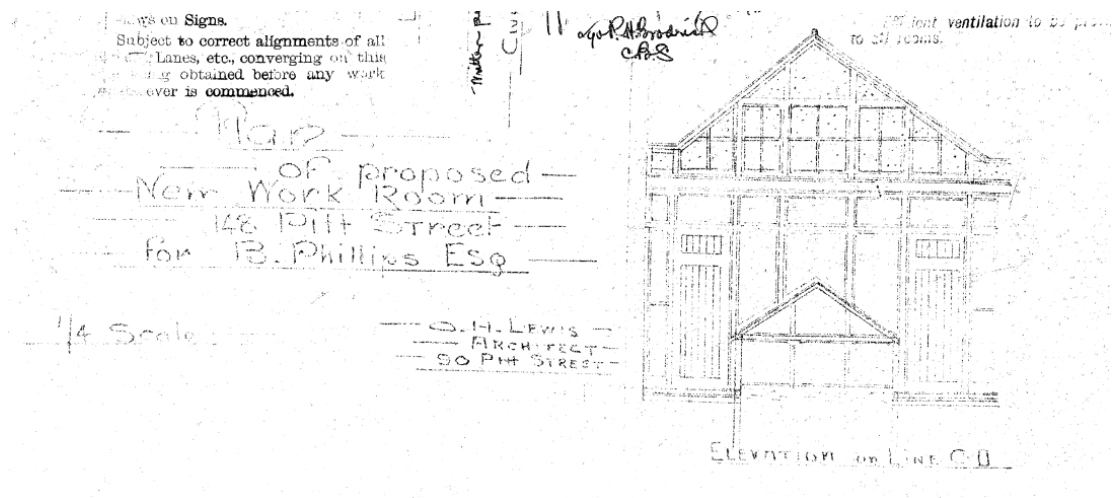 on Signs.
Subject to correct alignments of all
Lanes, etc., converging on this
obtained before any work
ever is commenced.
ventilation to be
to all rooms.
Plan
of proposed
New Work Room
148 Pitt Street
for B. Phillips Esq
1/4 Scale
S. H. Lewis
Architect
90 Pitt Street
Elevation on Line C.D